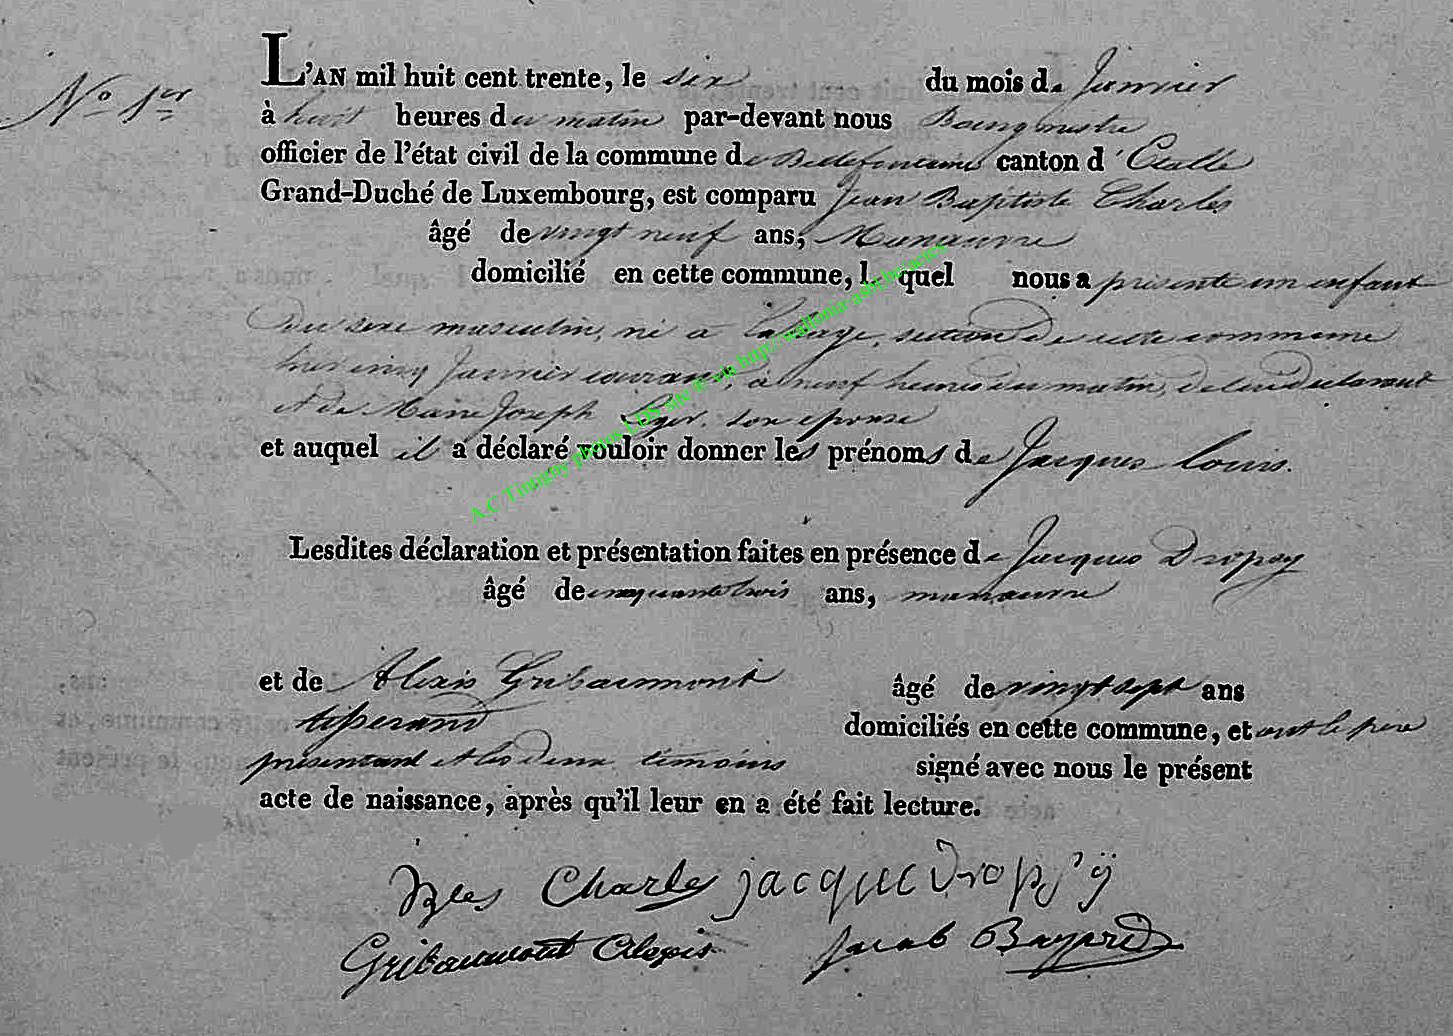 N° 1er
L'AN mil huit cent trente, le six du mois de Janvier
à huit heures du matin par-devant nous Bourgmestre
officier de l'état civil de la commune de Bellefontaine canton d'Etalle
Grand-Duché de Luxembourg, est comparu Jean Baptiste Charles
âgé de vingt neuf ans, Manœuvre
domicilié en cette commune, lequel nous a présenté un enfant
du sexe masculin, né à Lahage, section de cette commune
hier cinq Janvier courant à neuf heures du matin, de lui déclarant
et de Marie Joseph son épouse
et auquel il a déclaré vouloir donner les prénoms de Jacques Louis.
Lesdites déclaration et présentation faites en présence de Jacques Dropsy
âgé de cinquante trois ans, manœuvre
et de Alexis Gribaumont âgé de vingt sept ans
tisserand domiciliés en cette commune, et ont le père
présentant et les deux témoins signé avec nous le présent
acte de naissance, après qu'il leur en a été fait lecture.
Charles jacque Dropsÿ
Gribaumont Alexis Jacob Bayard
A.C Tintigny photos LDS site © via http://wallonia-asbl.be/actes